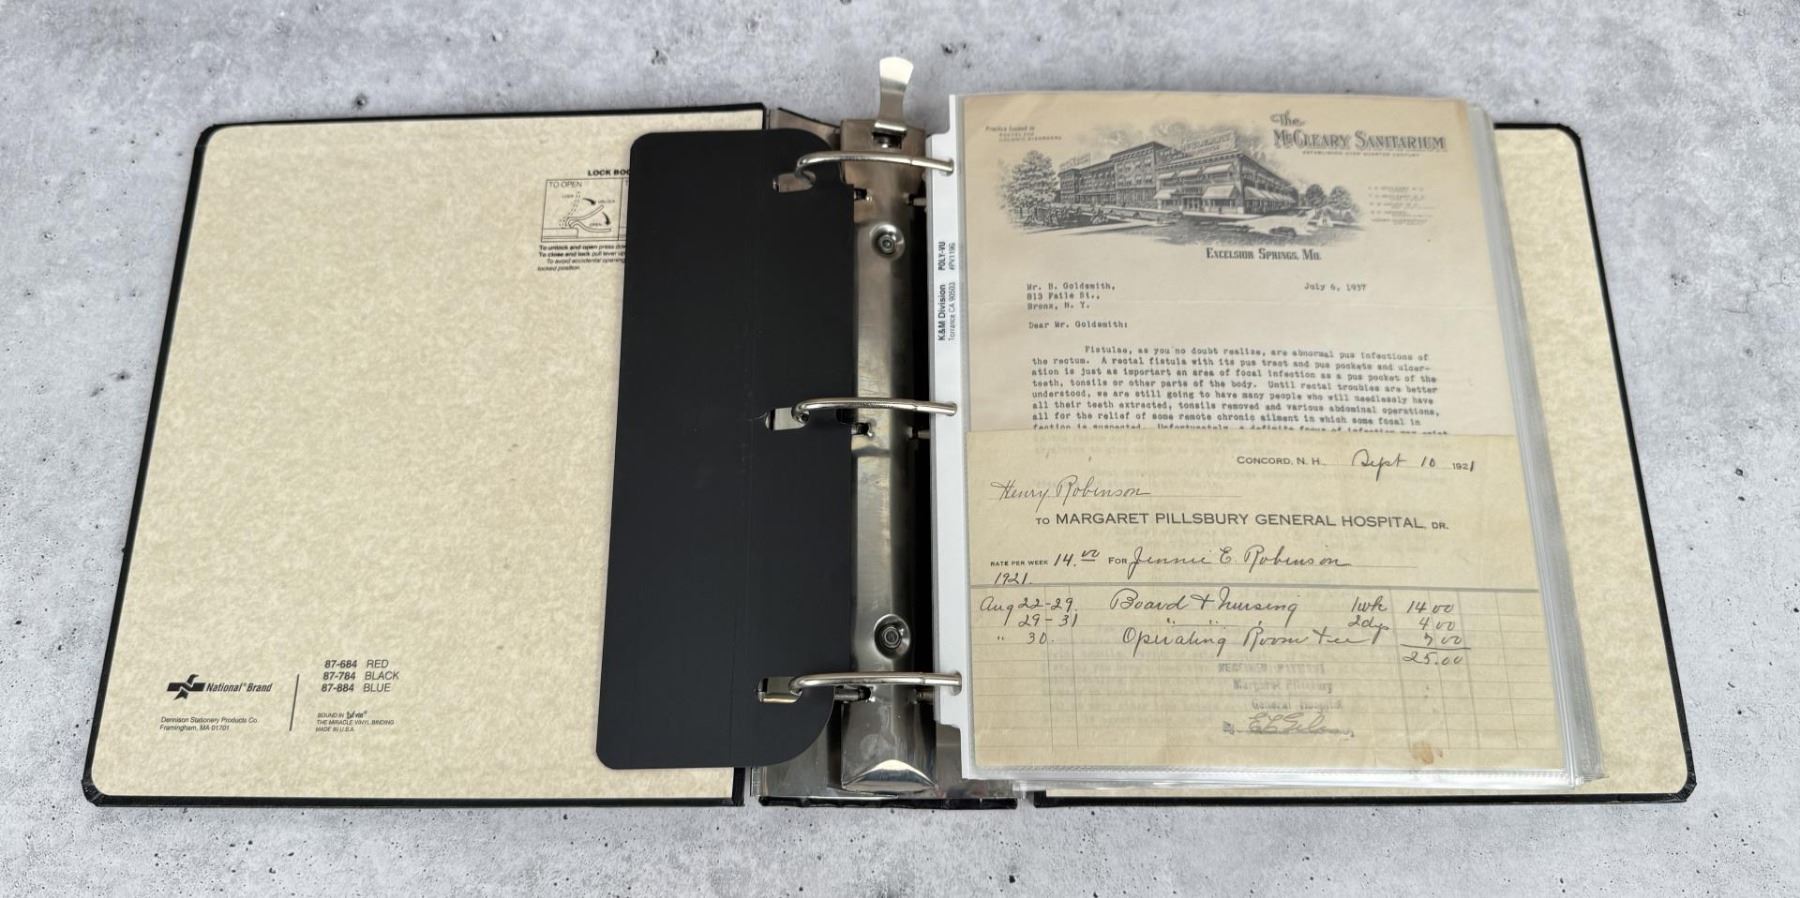 LOCK BOO
TO OPEN
To unlock and open press dow
To close and lock pull lever up
To avoid accidental opening
locked position.
National® Brand
Dennison Stationery Products Co.
Framingham, MA 01701
87-684 RED
87-784 BLACK
87-884 BLUE
BOUND IN
THE MIRACLE VINYL BINDING
MADE IN U.S.A.
K&M Division POLY-VU
Torrance CA 90503
The
McCleary Sanitarium
ESTABLISHED OVER QUARTER CENTURY
Excelsior Springs, Mo.
July 6, 1937
Mr. B. Goldsmith,
813 Faile St.,
Bronx, N. Y.
Dear Mr. Goldsmith:
Fistulae, as you no doubt realize, are abnormal pus infections of
the rectum. A rectal fistula with its pus tract and pus pockets and ulcer-
ation is just as important an area of focal infection as a pus pocket of the
teeth, tonsils or other parts of the body. Until rectal troubles are better
understood, we are still going to have many people who will needlessly have
all their teeth extracted, tonsils removed and various abdominal operations,
all for the relief of some remote chronic ailment in which some focal in
fection is suspected. Unfortunately, a definite focus of infection may exist
CONCORD, N. H., Sept 10 1921
Henry Robinson
TO MARGARET PILLSBURY GENERAL HOSPITAL, DR.
RATE PER WEEK 14.00 FOR Jennie E. Robinson
1921.
Aug 22-29. Board & Nursing 1wk 14 00
" 29-31 " " " 2dys 4 00
" 30. Operating Room Fee 7 00
25.00
RECEIVED PAYMENT
Margaret Pillsbury
General Hospital